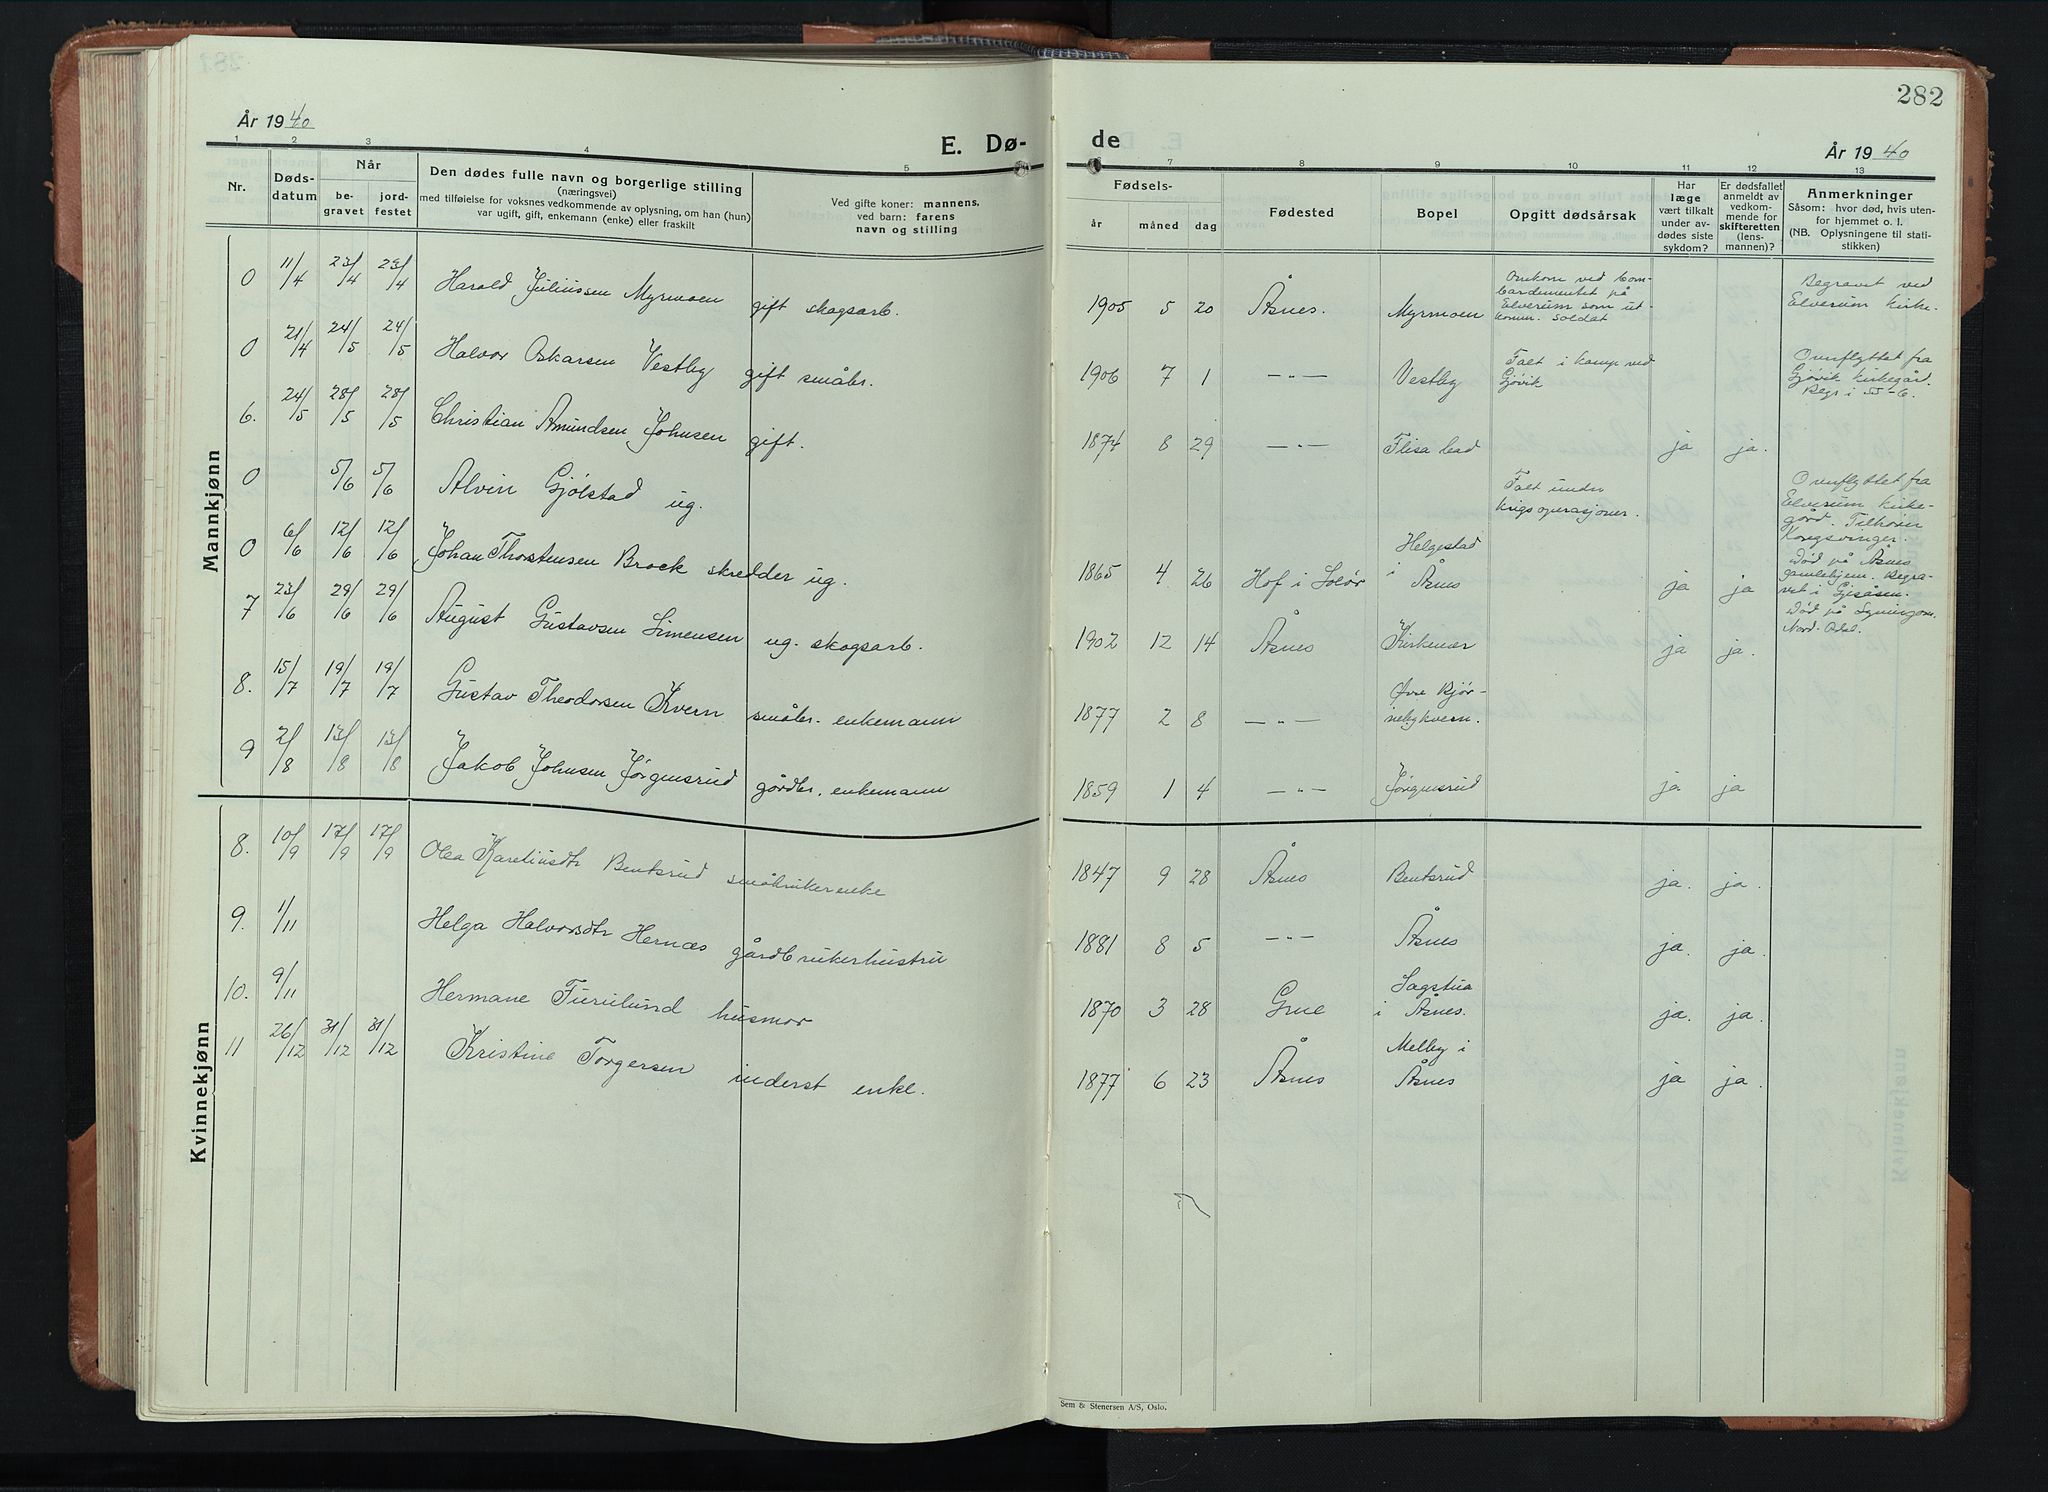 282
År 1940
E. Dø-
de
År 1940
1 2 3 4 5 6 7 8 9 10 11 12 13
Nr.
Dødsdatum
Når
be-
gravet
jord-
festet
Den dødes fulle navn og borgerlige stilling
(næringsvei)
med tilføielse for voksnes vedkommende av oplysning, om han (hun)
var ugift, gift, enkemann (enke) eller fraskilt
Ved gifte koner: mannens,
ved barn: farens
navn og stilling
Fødsels-
år måned dag
Fødested
Bopel
Opgitt dødsårsak
Har
læge
vært tilkalt
under av-
dødes siste
sykdom?
Er dødsfallet
anmeldt av
vedkom-
mende for
skifteretten
(lens-
mannen)?
Anmerkninger
Såsom: hvor død, hvis uten-
for hjemmet o. l.
(NB. Oplysningene til stati-
stikken)
Mannkjønn
0 11/4 23/4 23/4 Harald Juliussen Myrmoen gift skogsarb. 1905 5 20 Åsnes. Myrmoen
Omkom ved bom-
bardementet på
Elverum som ut-
komm. soldat
Begravet ved
Elverum kirke.
0 21/4 24/5 24/5 Halvor Oskarsen Vestby gift småbr. 1906 7 1 —"— Vestby
Falt i kamp ved
Gjøvik
Overflyttet fra
Gjøvik kirkegård.
Begr i 55-6.
6. 24/5 28/5 28/5 Christian Amundsen Johnsen gift. 1874 8 29 —"— Flisa ja ja.
0 5/6 5/6 Alvin Gjølstad ug.
Falt under
krigsoperasjoner.
Overflyttet fra
Elverum kirke-
gård. Tilhører
Kongsvinger.
0 6/6 12/6 12/6 Johan Thorstensen Brock skredder ug. 1865 4 26 Hof i Solør
Helgestad
i Åsnes ja ja
Død på Åsnes
gamlehjem. Begra-
vet i Gjesåsen.
7 23/6 29/6 29/6 August Gustavsen Simensen ug. skogsarb. 1902 12 14 Åsnes Kirkenær ja ja.
Død på
Nord-Odal.
8. 15/7 19/7 19/7 Gustav Theodorsen Kvern småbr. enkemann 1877 2 8 —"—
Øvre Bjør-
nebykvern.
9 2/8 13/8 13/8 Jakob Johnsen Jørgensrud gårdbr. enkemann 1859 1 4 —"— Jørgensrud ja ja
Kvinnekjønn
8. 10/9 17/9 17/9 Olea Kareliusdtr Bentsrud småbrukerenke 1847 9 28 Åsnes Bentsrud ja. ja.
9. 1/11 Helga Halvorsdtr Hernæs gårdbrukerhustru 1881 8 5 —"— Åsnes ja. ja.
10. 9/11 Hermane Furulund husmor 1870 3 28 Grue
Sagstua
i Åsnes. ja. ja.
11 26/12 31/12 31/12 Kristine Torgersen inderst enke. 1877 6 23 Åsnes
Melby i
Åsnes ja ja.
Sem & Stenersen A/S, Oslo.